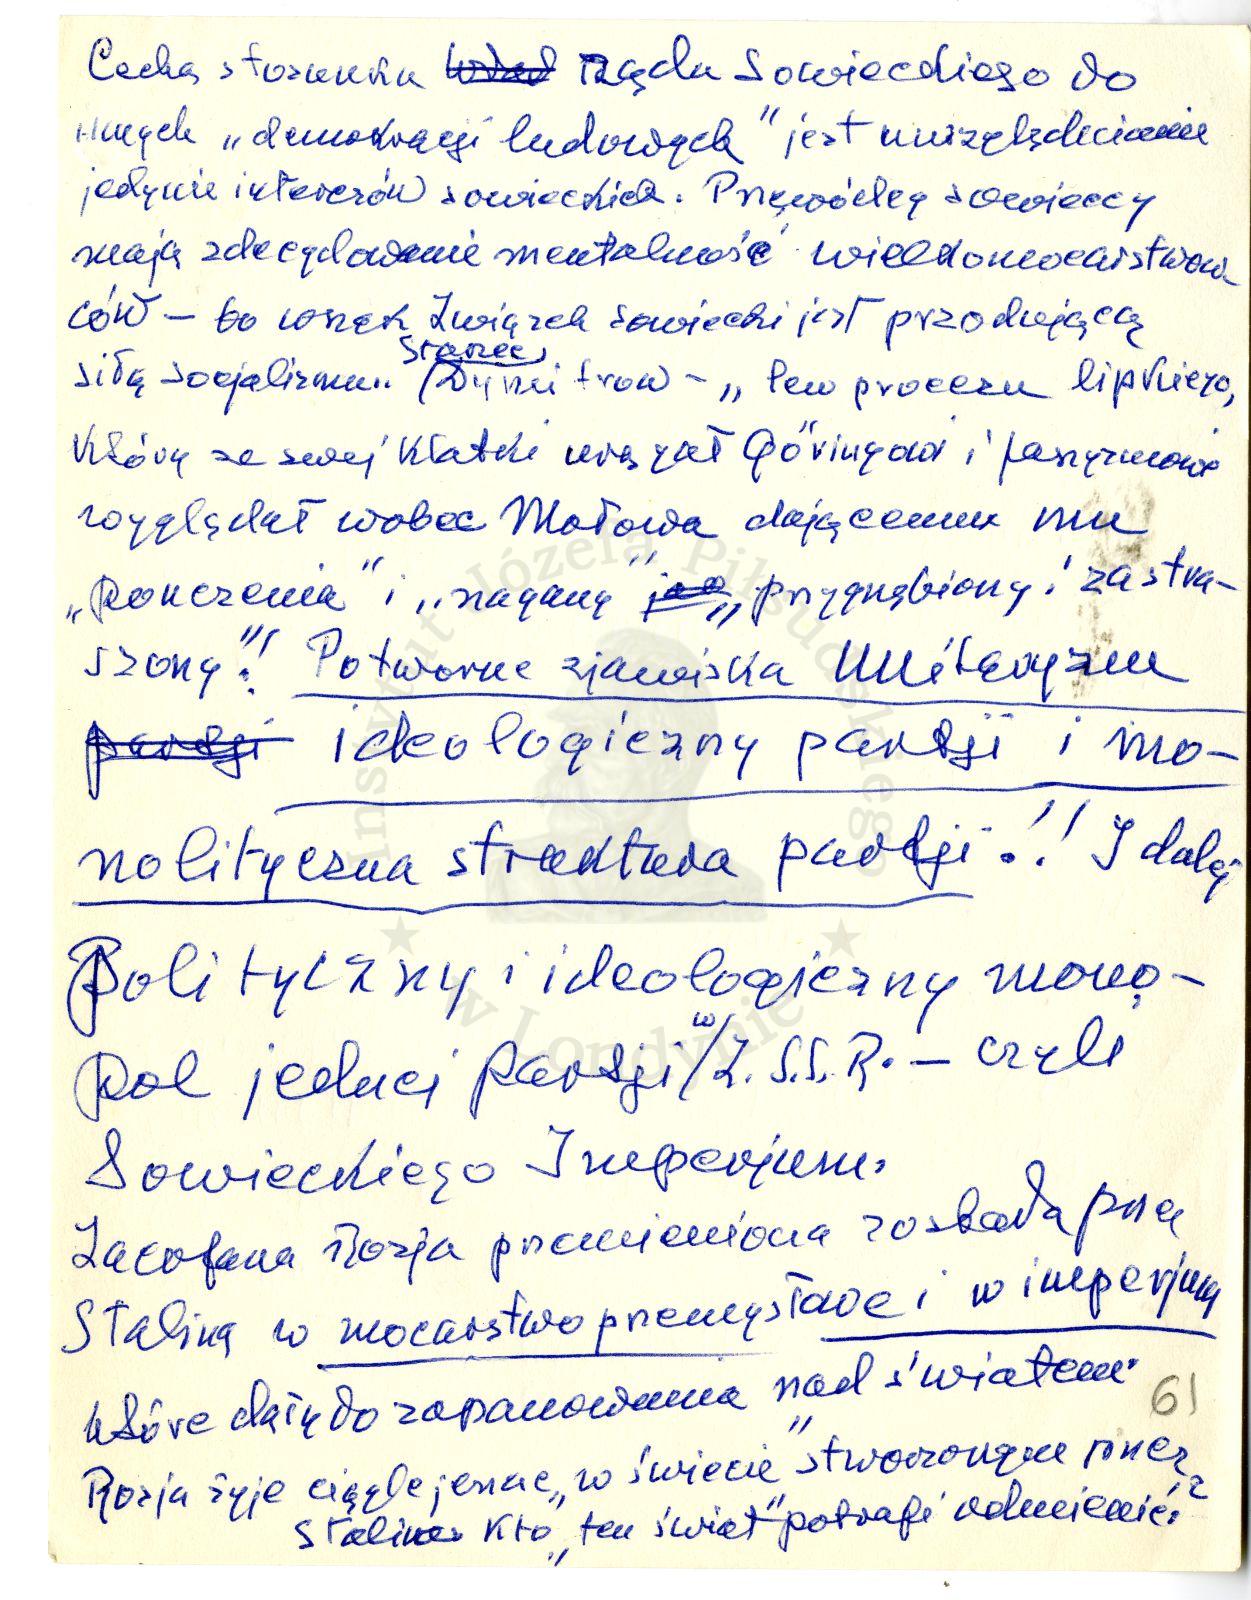 Cechą stosunku rządu Sowieckiego do
innych „demokracji ludowych" jest uwzględnianie
jedynie interesów sowieckich. Przywódcy sowieccy
mają zdecydowanie mentalność wielkomocarstwow
ców – bo wszak Związek Sowiecki jest przodującą
siłą socjalizmu.. Starzec
(Dymitrow – „lew procesu lipskiego,
który ze swej klatki urągał Göringowi i faszyzmowi
wyglądał wobec Mołowa dającemu mu
„pouczenia" i „naganę" „przygnębiony i zastra-
szony"! Potworne zjawiska Unitaryzm
partji ideologiczny partji i mo-
nolityczna struktura partji!! I dalej
Polityczny i ideologiczny mono-
pol jednej partji w Z.S.S.R. – czyli
Sowieckiego Imperjum.
Zacofana Rosja przemieniona została przez
Stalina w mocarstwo przemysłowe i w imperjum
które dąży do zapanowania nad światem.
Rosja żyje ciągle jeszcze „w świecie" stworzonym przez
Stalina Kto „ten świat" potrafi odmienić?
61
Instytut Józefa Piłsudskiego
w Londynie